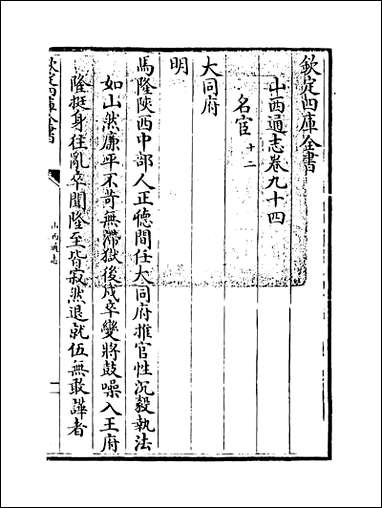 欽定四庫全書
山西通志卷九十四
名宦十二
大同府
明
馬隆陝西中部人正德間任大同府推官性沉毅執法
如山然廉平不苛無滯獄後戍卒變將鼓噪入王府
隆挺身往亂卒聞隆至皆寂然退就伍無敢譁者
欽定四庫全書
山西通志
一